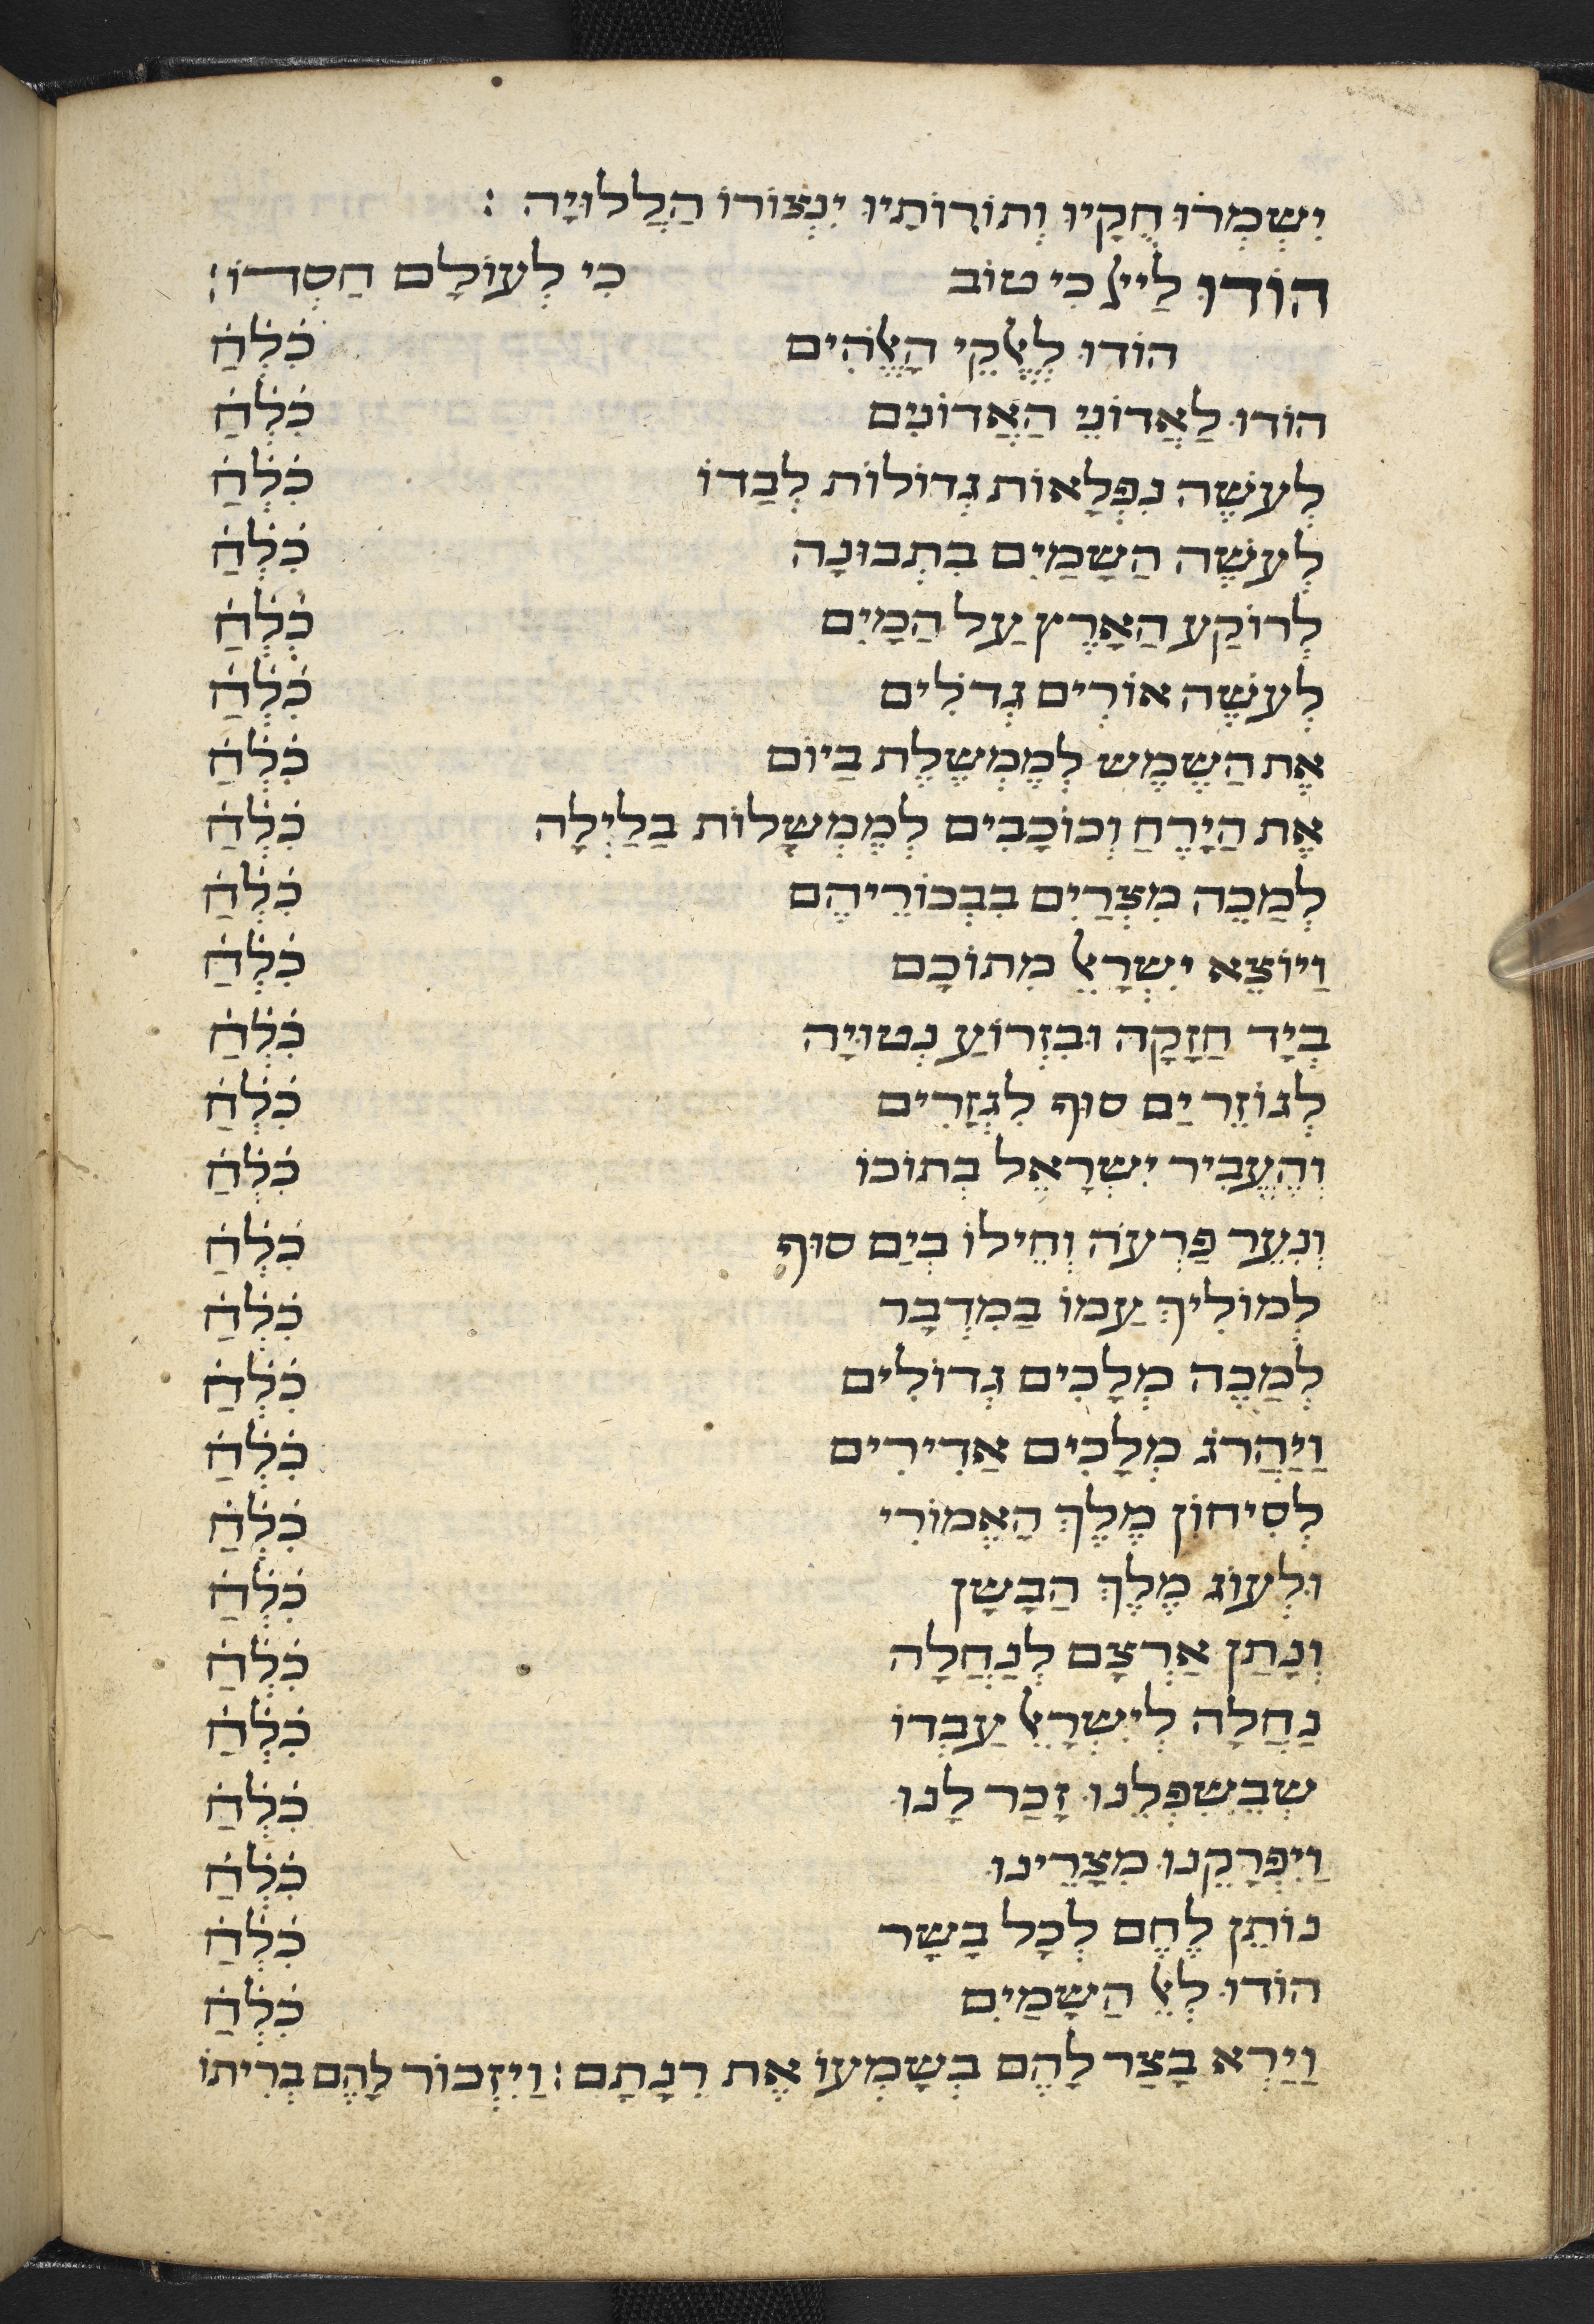 יִשְׁמְרוּ חֻקָיו וְתוֹרוֹתָיו יִנְצוֹרוֹ הַלֲלוּיָה :
הוֹדוּ לַייֹ כִי טוֹב כִי לְעוֹלָם חַסְדוֹ:
הוֹדוּ לֶאֱלֹקֵי הָאֱלֹהִים כִלְחַ
הוֹדוּ לַאֲדוֹנֵי הַאֲדוֹנִים כִלְחַ
לְעשֶה נִפְלָאוֹת גְדוֹלוֹת לְבַדוֹ כִלְחַ
לְעשֶה הַשָמַיִם בִתְבוּנָה כִלְחַ
לְרוֹקַע הַאָרֶץ עַל הַמָיִם כִלְחַ
לְעשֶה אוֹרִים גְדלִים כִלְחַ
אֶת הַשֶמֶש לְמֶמְשֶלֶת בַיוֹם כִלְחַ
אֶת הַיָרֶחַ וְכוֹכָבִים לְמֶמְשָלוֹת בַלַיְלָה כִלְחַ
לְמַכֵה מִצְרַיִם בִבְכוֹרֵיהֶם כִלְחַ
וַיוֹצֵא יִשְרָאֵל מִתוֹכָם כִלְחַ
בְיָד חַזָקָה וּבִזְרוֹעַ נְטוּיָה כִלְחַ
לְגוֹזֵר יַם סוּף לִגְזָרִים כִלְחַ
וְהֶעֱבִיר יִשְרָאֵל בְתוֹכוֹ כִלְחַ
וְנִעֵר פַרְעֹה וְחֵילוֹ בְיַם סוּף כִלְחַ
לְמוֹלִיךְ עַמוֹ בַמִדְבָר כִלְחַ
לְמַכֶה מְלָכִים גְדוֹלִים כִלְחַ
וַיַהֲרֹג מְלָכִים אַדִירִים כִלְחַ
לְסִיחוֹן מֶלֶךְ הָאֱמוֹרִי כִלְחַ
וּלְעוֹג מֶלֶךְ הַבָשָן כִלְחַ
וְנָתַן אַרְצָם לְנַחֲלָה כִלְחַ
נַחֲלָה לְיִשְרָאֵל עַבְדוֹ כִלְחַ
שְבְשִפְלֵנוּ זָכַר לָנוּ כִלְחַ
וַיִפְרָקֵנוּ מִצָרֵינוּ כִלְחַ
נוֹתֵן לֶחֶם לְכָל בָשָר כִלְחַ
הוֹדוּ לְאֵל הַשָמַיִם כִלְחַ
וַיַרְא בָצַר לָהֶם בְשָמְעוֹ אֶת רִנָתָם : וַיִזְכוֹר לָהֶם בְרִיתוֹ